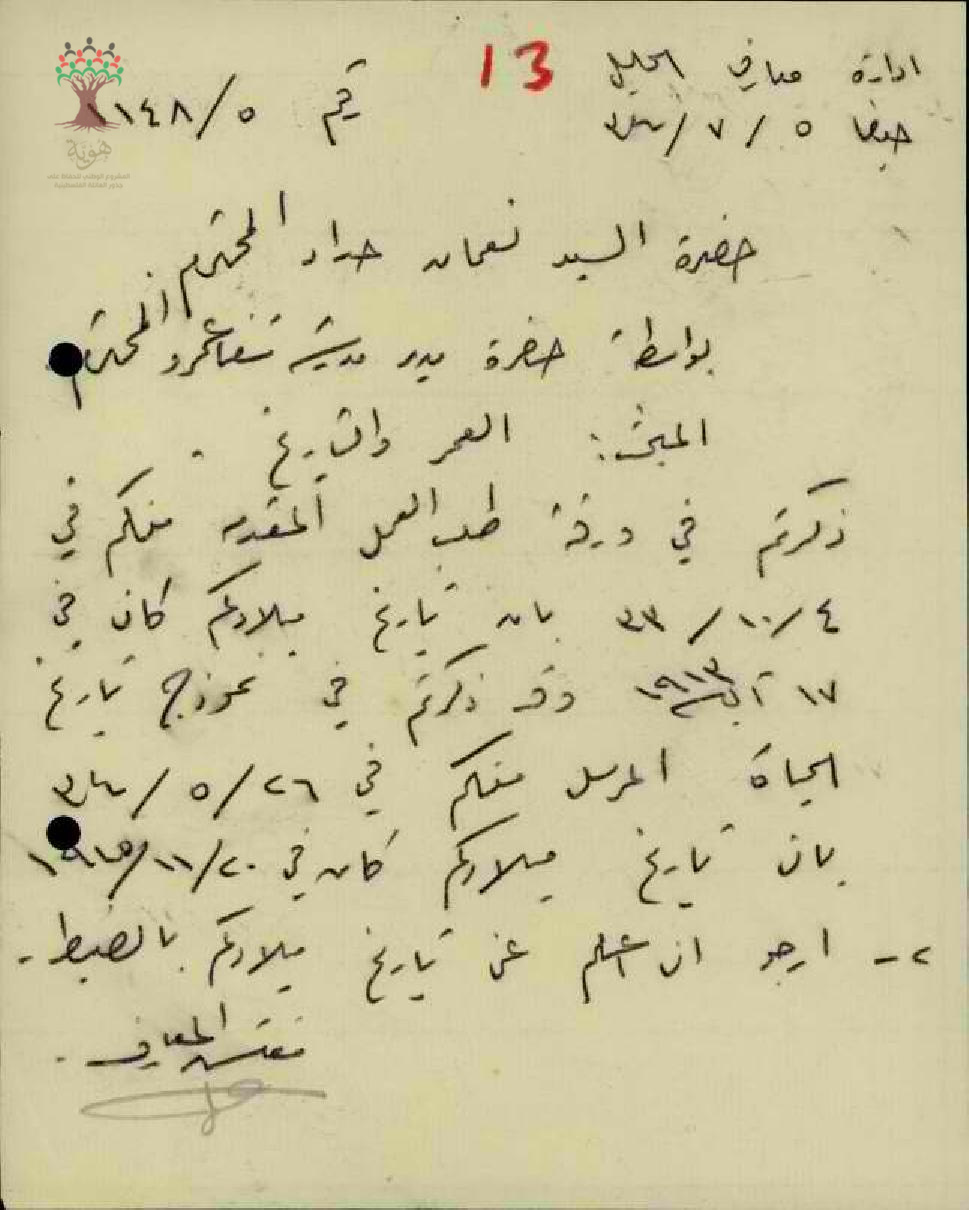 ادارة معارف الجليل
13
حيفا ٥ / ٧ /
رقم ٥/١١٤٨
هوية
المشروع الوطني للحفاظ على
جذور العائلة الفلسطينية
حضرة السيد نعمان حداد المحترم
بواسطة حضرة مدير مدرسة شفاعمرو المحترم
المبحث: العمر والتاريخ .
ذكرتم في ورقة طلب العمل المقدمه منكم في
٤ /١٠/ ٣٣ بان تاريخ ميلادكم كان في
١٧ آب ١٩١٣ وقد ذكرتم في نموذج تاريخ
الحياة المرسل منكم في ٢٦ /٥ /
بان تاريخ ميلادكم كان في ٢٠ /١١/
٢ - ارجو ان اعلم عن تاريخ ميلادكم بالضبط .
مفتش المعارف .